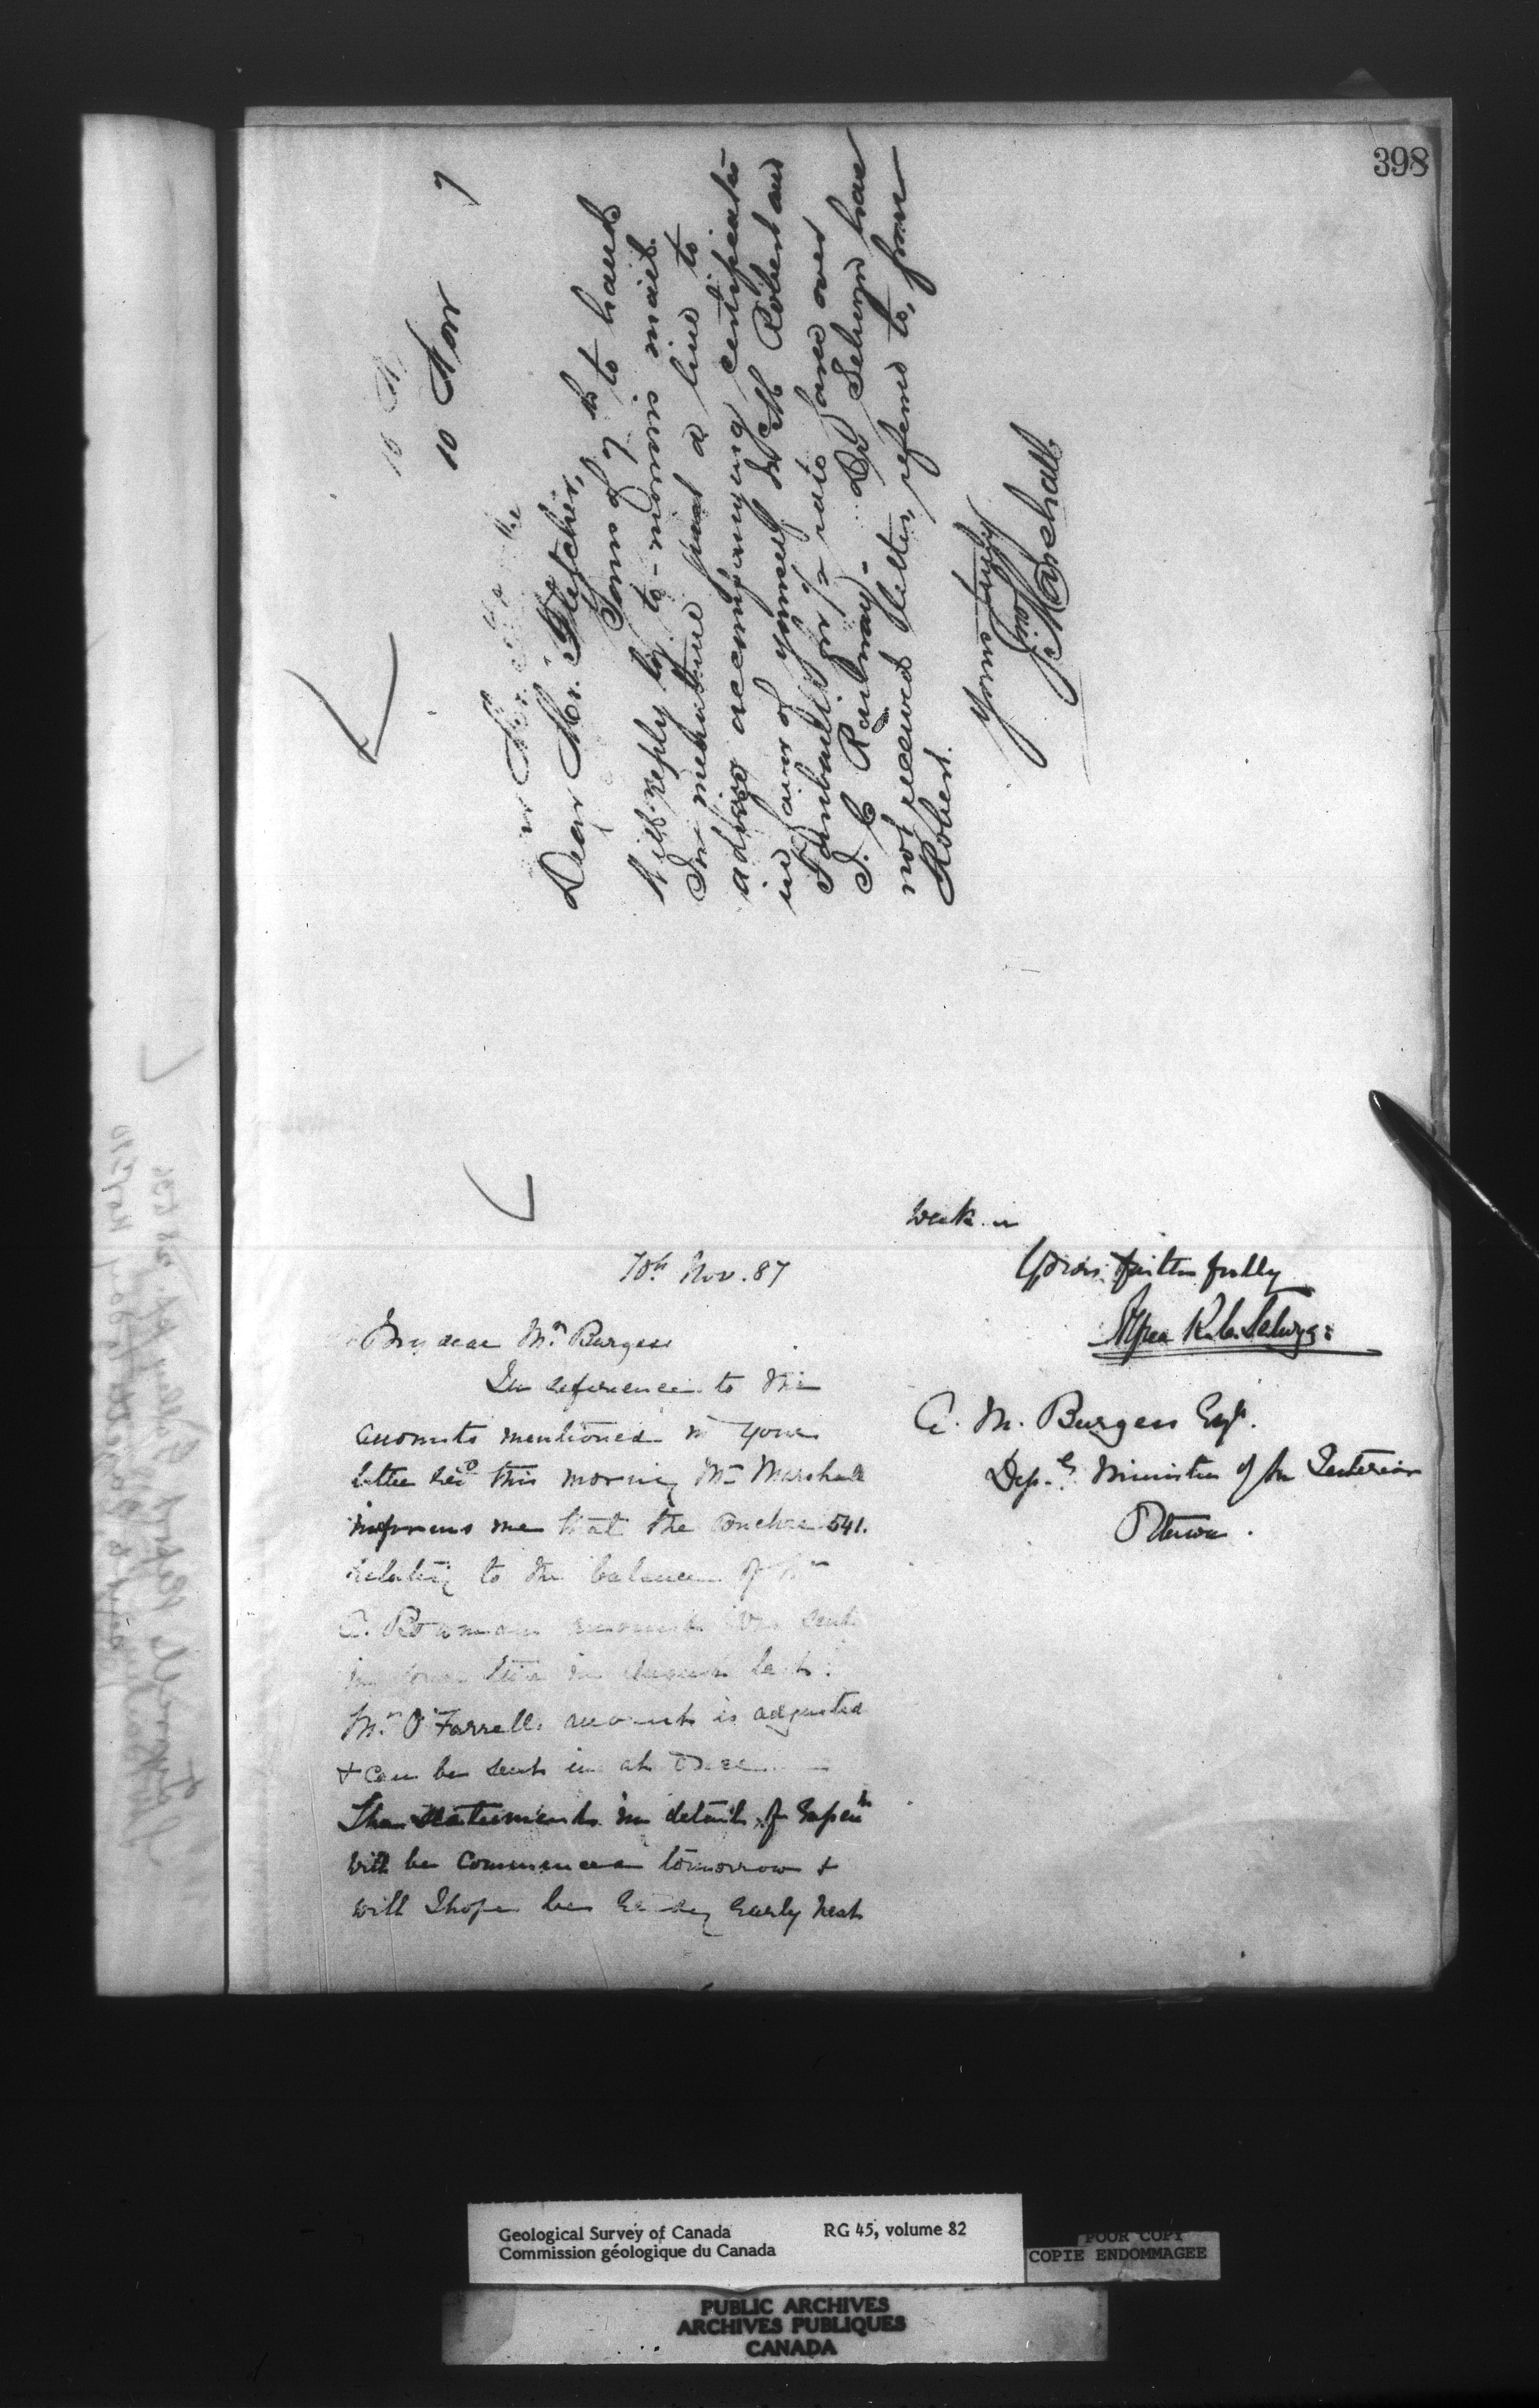 398
10 Nov 7
Dear Mr. Fletcher,
Yours of 7th to hand
Will reply by to-morrow's mail
In meantime just a line to
advise accompanying certificate
in favor of yourself Mr M Robert and
Faribault for 1/2 rate fares over
I. C. Railway - Dr Selwyn has
not received letter, referred to, from
Robert.
Yours truly
Jno Marshall
10th Nov. 87
My dear Mr. Burgess
In reference to the
accounts mentioned in your
letter recd this morning Mr Marshall
informs me that the voucher 541.
relating to the balance of Mr
A. Bowman account was sent
in August last.
Mr. O'Farrells account is adjusted
+ can be sent in at once
The statements in detail of Expenre
will be commenced tomorrow +
will I hope be ready early next
week
Yours faithfully
Alfred R. C. Selwyn
A. M. Burgess Esqr.
Depy Minister of the Interior
Ottawa.
Geological Survey of Canada RG 45, volume 82
Commission géologique du Canada
POOR COPY
COPIE ENDOMMAGEE
PUBLIC ARCHIVES
ARCHIVES PUBLIQUES
CANADA